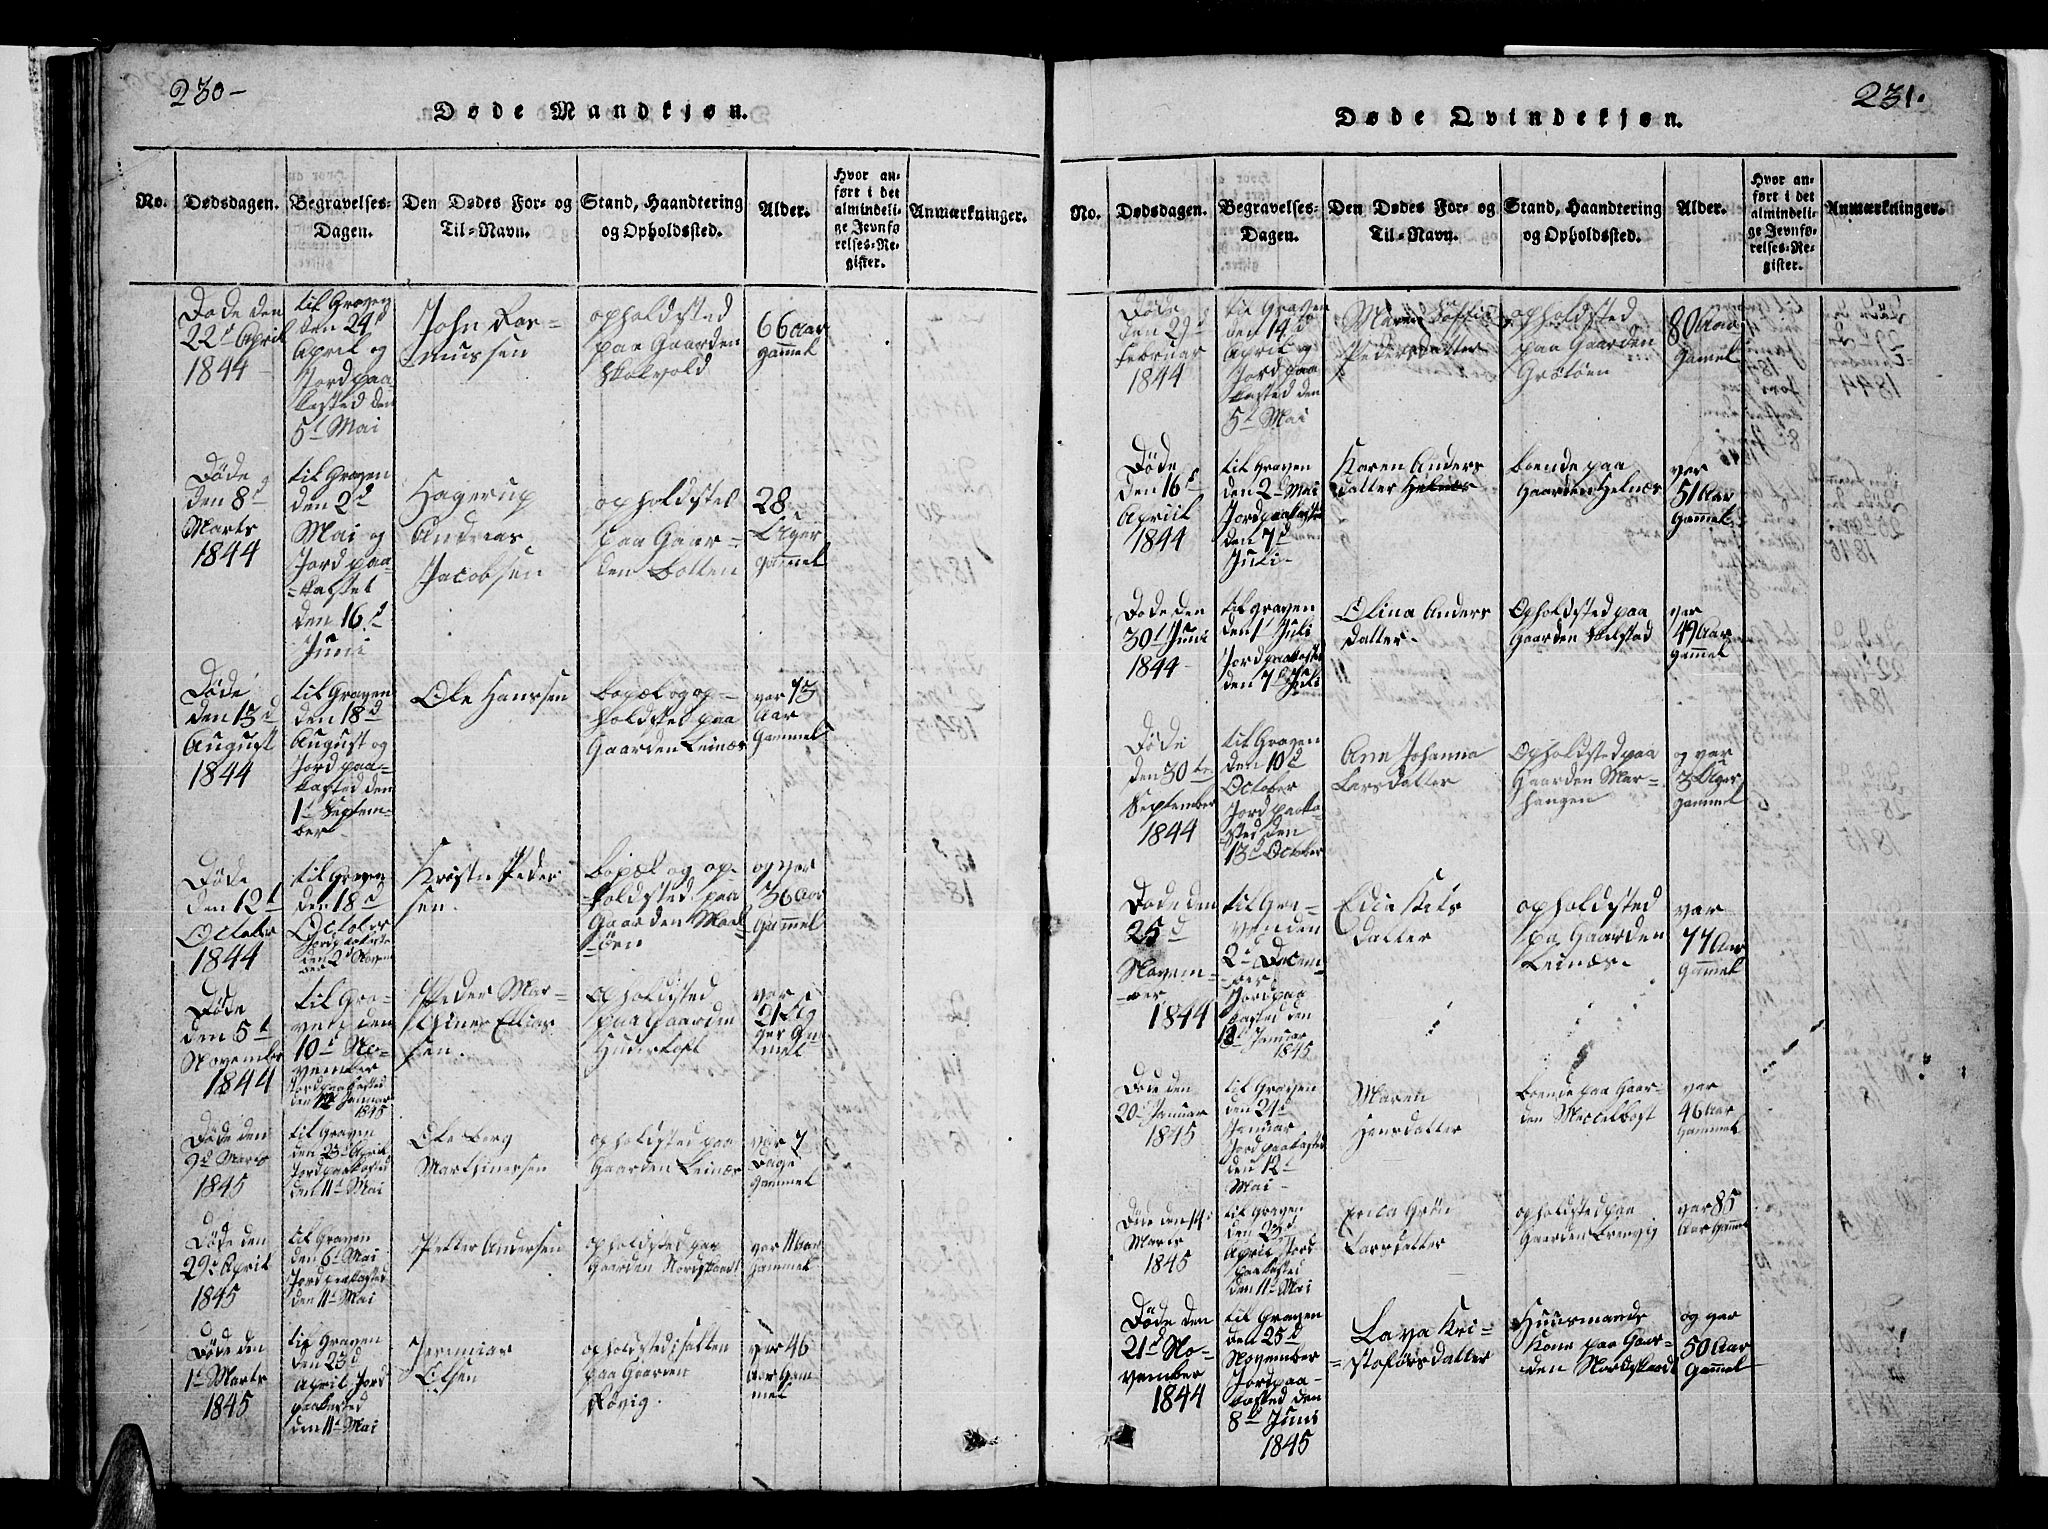 230-
Døde Mandkjøn.
No.
Dødsdagen.
Begravelses-
Dagen.
Den Dødes For- og
Til-Navn.
Stand, Haandtering
og Opholdssted.
Alder.
Hvor an-
ført i det
almindeli-
ge Jevnfø-
relses-Re-
gister.
Anmærkninger.
Døde den
22d April
1844
til Graven
den 24d
April og
Jord paa-
kasted den
5t Mai
John Ras-
mussen
opholdsted
paa Gaarden
66 Aar
gammel
Døde
den 8d
Marts
1844
til Graven
den 2d
Mai og
Jord paa-
kastet
den 16d
Juni
Hagerup
Andreas
Jacobsen
opholdsted
paa Gaar-
den Botten
28
Uger
gammel
Døde
den 13d
August
1844
til Graven
den 18d
August og
Jord paa-
kasted den
1t Septem-
ber
Ole Hanssen
bopæl og op-
holdsted paa
Gaarden Leinæs
var 73
Aar
Gammel
Døde
den 12t
October
1844
til Graven
den 18d
October
Jord paakasted
den 2d Novem
ber
Kristen Peder
sen.
bopæl og op-
holdsted paa
Gaarden
og var
36 Aar
Gammel
Døde
den 5t
November
1844
til Gra-
ven den
10d No-
vember
Jord paakasted
den 12 Januar
1845
Peder Mar-
Elias
sen.
opholdsted
paa Gaarden
var
21 Ug
ger Ga
mel
Døde den
9d Marts
1845
til Graven
den 23d April
Jord paakasted
den 11t Mai
Ole Berg
Marthinersen
opholdsted paa
Gaarden Leinæs
var 7
Dage
Gammel
Døde den
29d April
1845
til Graven
den 6t Mai
Jord paakasted
den 11t Mai
Petter Andersen
opholdsted paa
Gaarden Nordskaadt
var 11 Aar
Gammel
Døde den
1t Marts
1845
til Graven
den 23d
April Jord
paakasted
den 11t Mai
Jeremias
Olsen
opholdsted i Salten
paa Gaarden
var 46
Aar Gam-
mel
231.
Døde Qvindekjøn.
No.
Dødsdagen.
Begravelses-
Dagen.
Den Dødes For- og
Til-Navn.
Stand, Haandtering
og Opholdssted.
Alder.
Hvor an-
ført i det
almindeli-
ge Jevnfø-
relses-Re-
gister.
Anmærkninger.
Døde
den 29d
Februar
1844
til Graven
den 14d
April og
Jord paa
kasted den
5t Mai
Maren Soffie
Pedersdatter
opholdsted
paa Gaarden
Grøtøen
80 Aar
Gamel
Døde
den 16d
Apriil
1844
til Graven
den 2d Mai
Jord paakasted
den 7d
Juli
Karen Anders
datter Helnæs
boende paa
Gaarden Helnæs
var
51 Aar
Gammel
Døde den
30t Juni
1844
til Graven
den 1t Juli
Jord paakasted
den 7d Juli
Olina Anders
datter
Opholdsted paa
Gaarden
var
49 Aar
Gammel
Døde
den 30te
September
1844
til Graven
den 10d
October
Jord paaka
sted den
13d October
Ane Johanna
Larsdatter
Opholdsted paa
Gaarden Mar-
hangen
og var
3 Uger
Gammel
Døde den
25d
Novem-
ber
1844
til Gra-
ven den
2d Decem-
ber
Jord paa
kasted den
12t Januar
1845
datter
opholdsted
paa Gaarden
Leinæs
var
77 Aar
Gammel
Døde den
20d Januar
1845
til Graven
den 21d
Januar
Jord paakasted
den 12t
Mai
Maren
Hansdatter
boende paa Gaar
den
var
46 Aar
Gammel
Døde den 14d
Marts
1845
til Graven
den 23d
April Jord
paakasted
den 11t Mai
Larsdatter
opholdsted paa
Gaarden Brenvig
var 85
Aar Gammel
Døde den
21d No-
vember
1844
til Graven
den 25d
November
Jord paa-
kasted den
8d Juni
1845
Lava Kri-
stoførsdatter
Huusmands
Kone paa Gaar-
den Nordskaadt
og var
50 Aar
Gammel